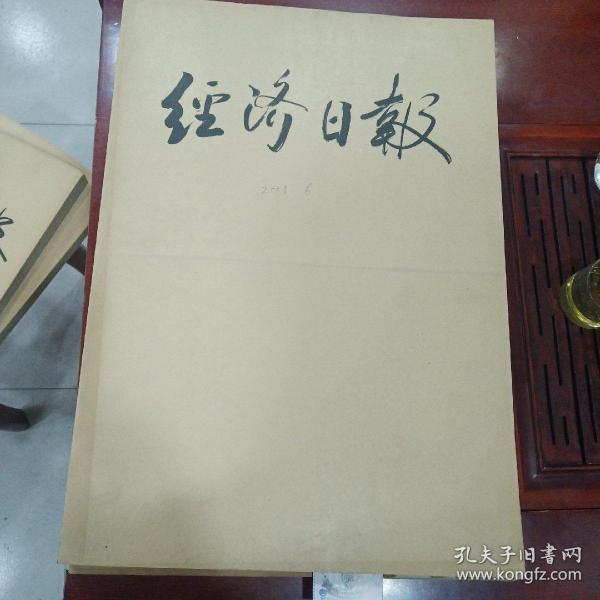 經济日報
2003 6
孔夫子旧书网
www.kongfz.com